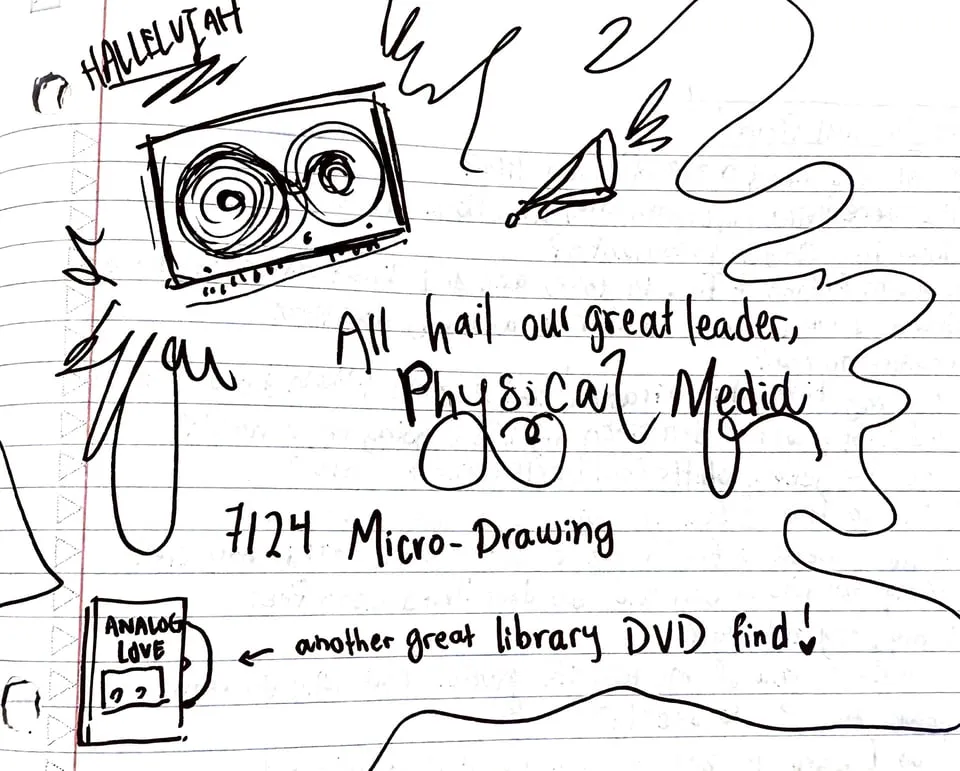 HALLELUJAH
All hail our great leader,
Physical Media
7/24 Micro-Drawing
ANALOG
LOVE
← another great library DVD find!